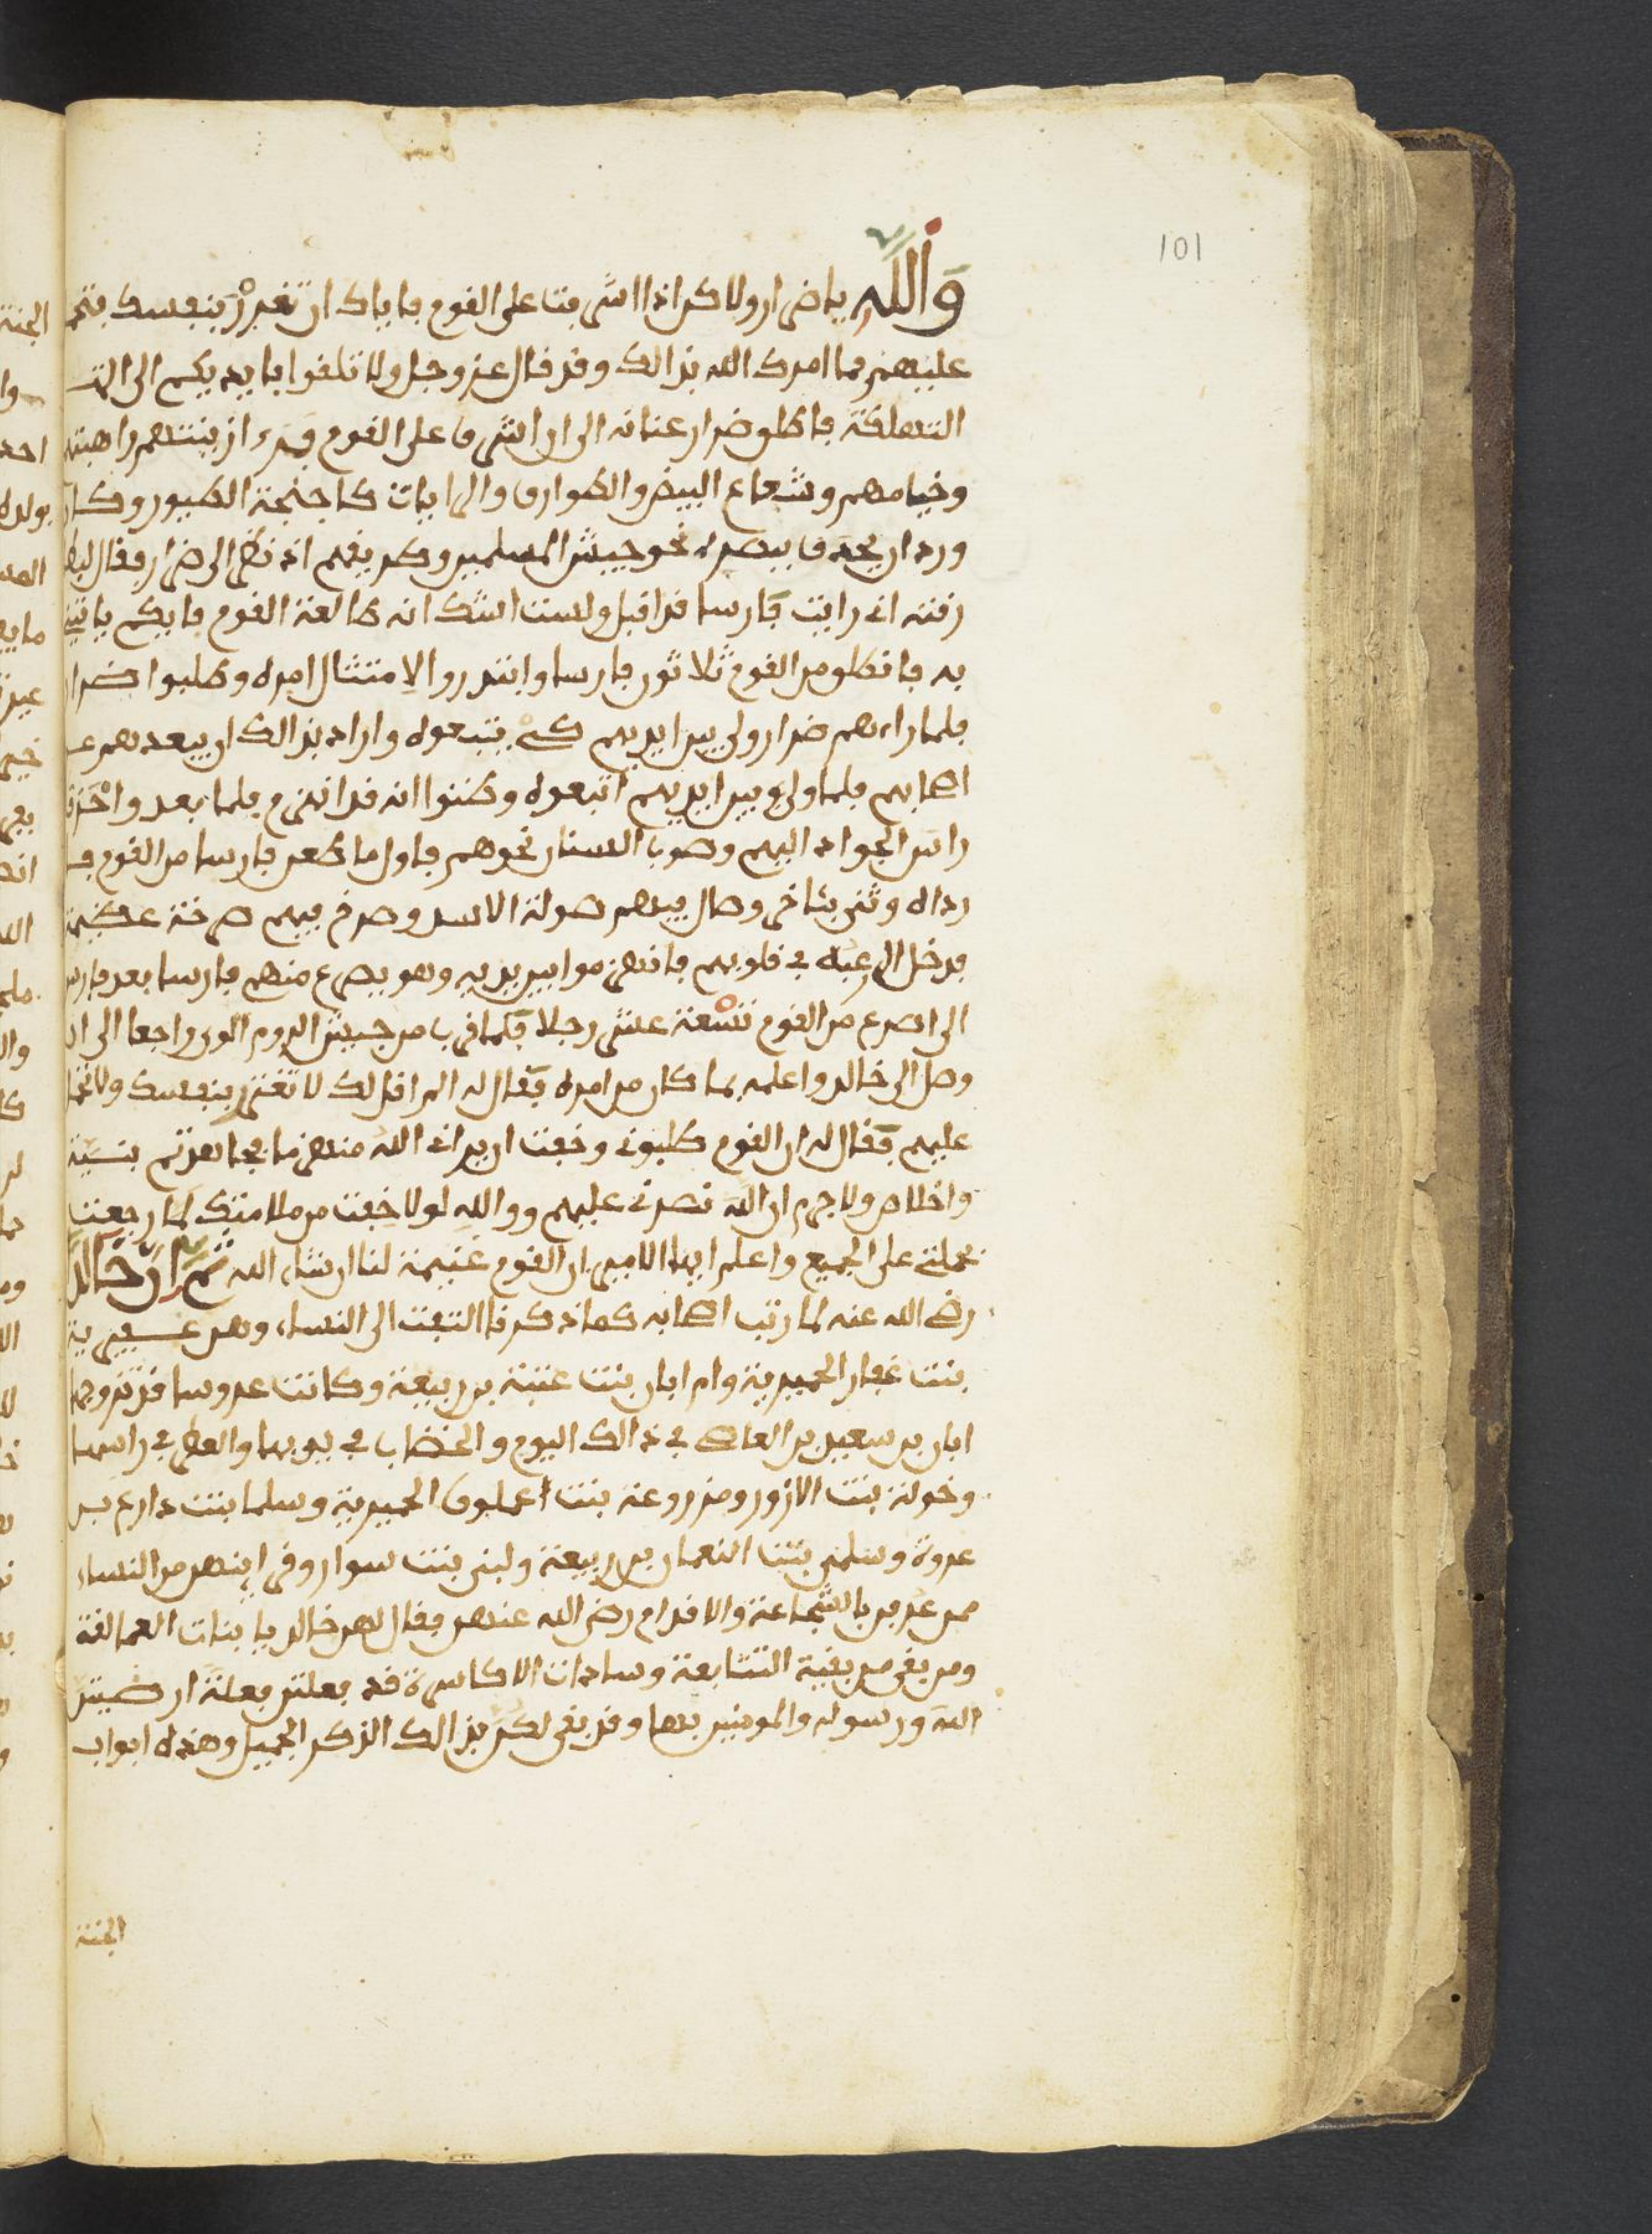 101
والله ياضرار ولاكن اذا اشرفت على القوم فاياك ان تغرر بنفسك فتحمل
عليهم فما امرك الله بذالك وقد قال عز وجل ولا تلقوا بايديكم الى الت
التهلكة فاطلق ضرار عنانه الى ان اشرف على القوم فرءا زينتهم واهبتهم
وخيامهم وشعاع البيض والطوارق والرايات كاجنحة الطيور وكان
وردان يحدق ببصره نحو جيش المسلمين وكريقهم اذ نظر الى ضرار وقال لبطا
رقته اني رايت فارسا قد اقبل ولست اشك انه طالعة القوم فايكم ياتيني
به فانطلق من القوم ثلاثون فارسا وابتدروا لامتثال امره وطلبوا ضرار
فلما راءهم ضرار ولى بين ايديهم كي يتبعوه واراد بذالك ان يبعدهم عن
اصحابهم فلما ولى بين ايديهم اتبعوه وظنوا انه قد انهزم فلما بعدوا
راس الجواد اليهم وصوب السنان نحوهم فاول ما طعن فارسا من القوم فا
رداه وثنى بئاخر وصال بينهم صولة الاسد وصرخ فيهم صرخة عظيمة
فدخل الرعب في قلوبهم فانهزموا بين يديه وهو يصرع منهم فارسا بعد فارس
الى ان صرع من القوم تسعة عشر رجلا فلما قرب من جيش الروم الوى راجعا الى ان
وصل الى خالد واعلمه بما كان من امره فقال له الم اقل لك لا تغتر بنفسك ولا تحمل
عليهم فقال له ان القوم طلبوني وخفت ان يراني الله منهزما فجاهدتهم بنية
واخلاص ولا جرم ان الله نصرني عليهم ووالله لولا خفت من ملامتك لما رجعت
بحملتي على الجميع واعلم ايها الامير ان القوم غنيمة لنا ان شاء الله ثم ان خالد
رضي الله عنه لما رتب اصحابه كما ذكرنا التفت الى النساء وهن عفيرية
بنت غفار الحميرية وام ابان بنت عتبة بن ربيعة وكانت عروسا قد تزوجها
ابان بن سعيد بن العاصي في ذالك اليوم والخضاب في يديها والعطر في راسها
وخولة بنت الازور ومزروعة بنت اعملوق الحميرية وسلما بنت دارع بن
عروة وسلمى بنت النعمان بن ربيعة ولبنى بنت سوار وقرابتهن من النساء
ممن عرفن بالشجاعة والاقدام رضي الله عنهن فقال لهن خالد يا بنات العمالقة
ومن بقي من بقية التتابعة وسادات الاكاسرة قد فعلتن فعلة ارضيتن
الله ورسوله والمومنين بها وقد بقي لكن بذالك الذكر الجميل وهذه ابواب
الجنة